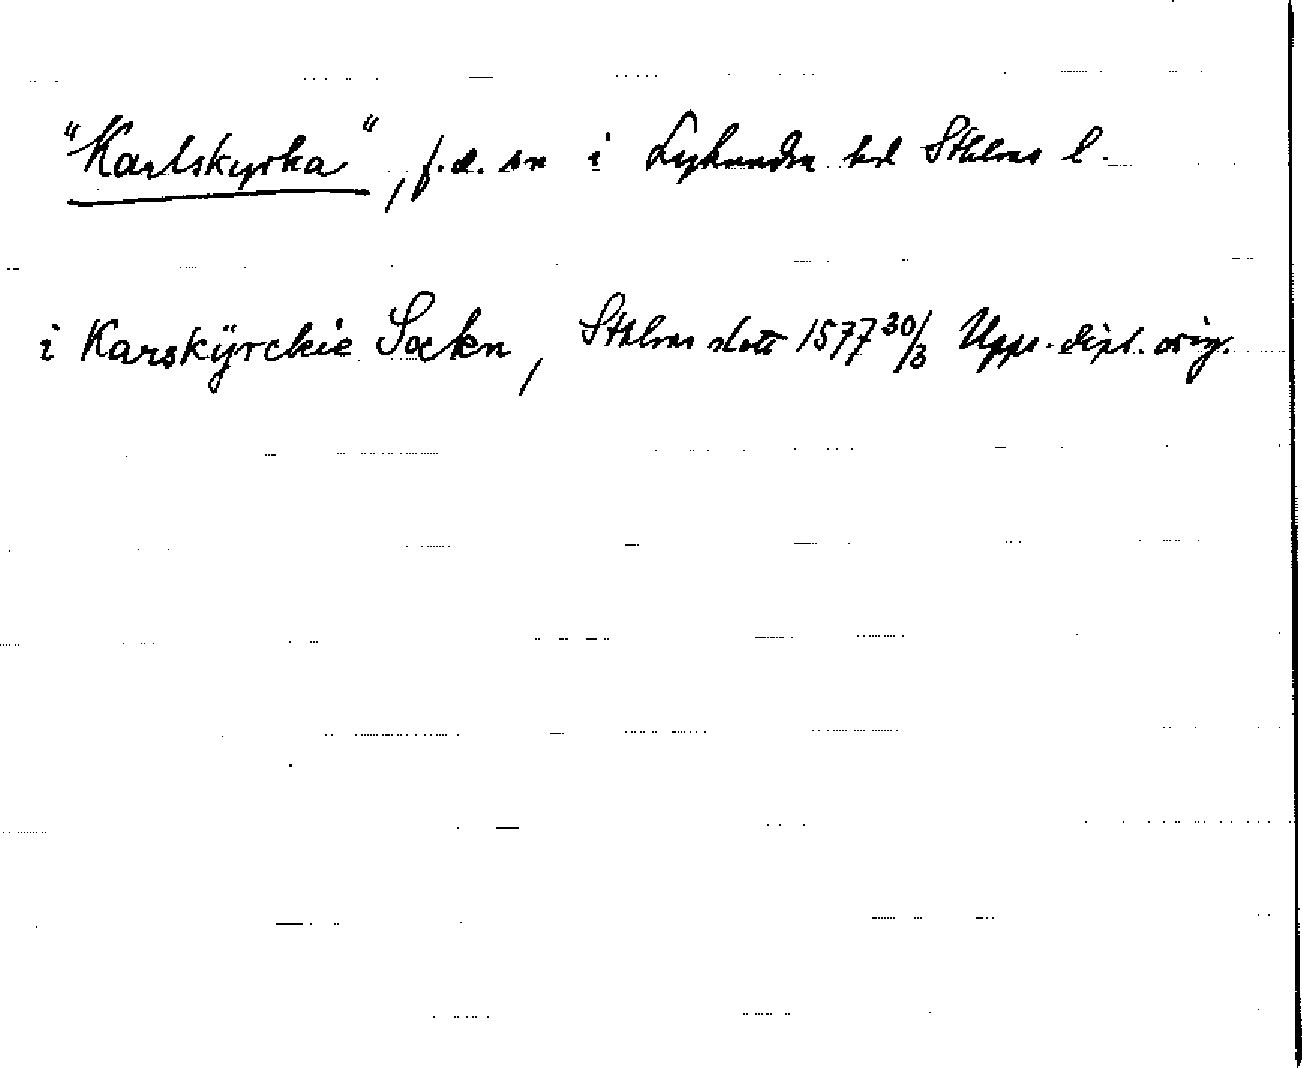 "Karlskyrka", f.d. sn i Lyhundra hd Sthlms l.
i Karskÿrckie Sockn, Sthlms slott 1577 30/3 Upps. dipl. orig.